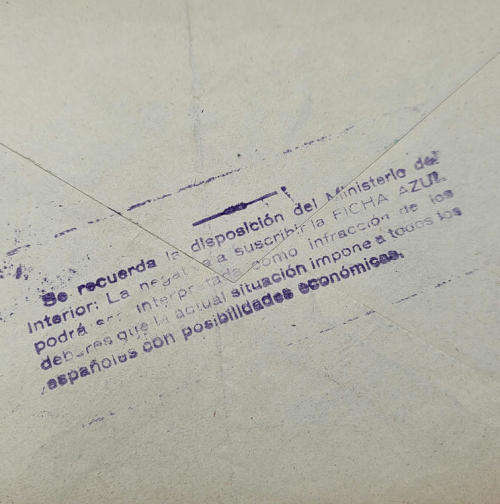 Se recuerda la disposición del Ministerio del
Interior: La negativa a suscribir la FICHA AZUL
podrá ser interpretada como infracción de los
deberes que la actual situación impone a todos los
españoles con posibilidades económicas.